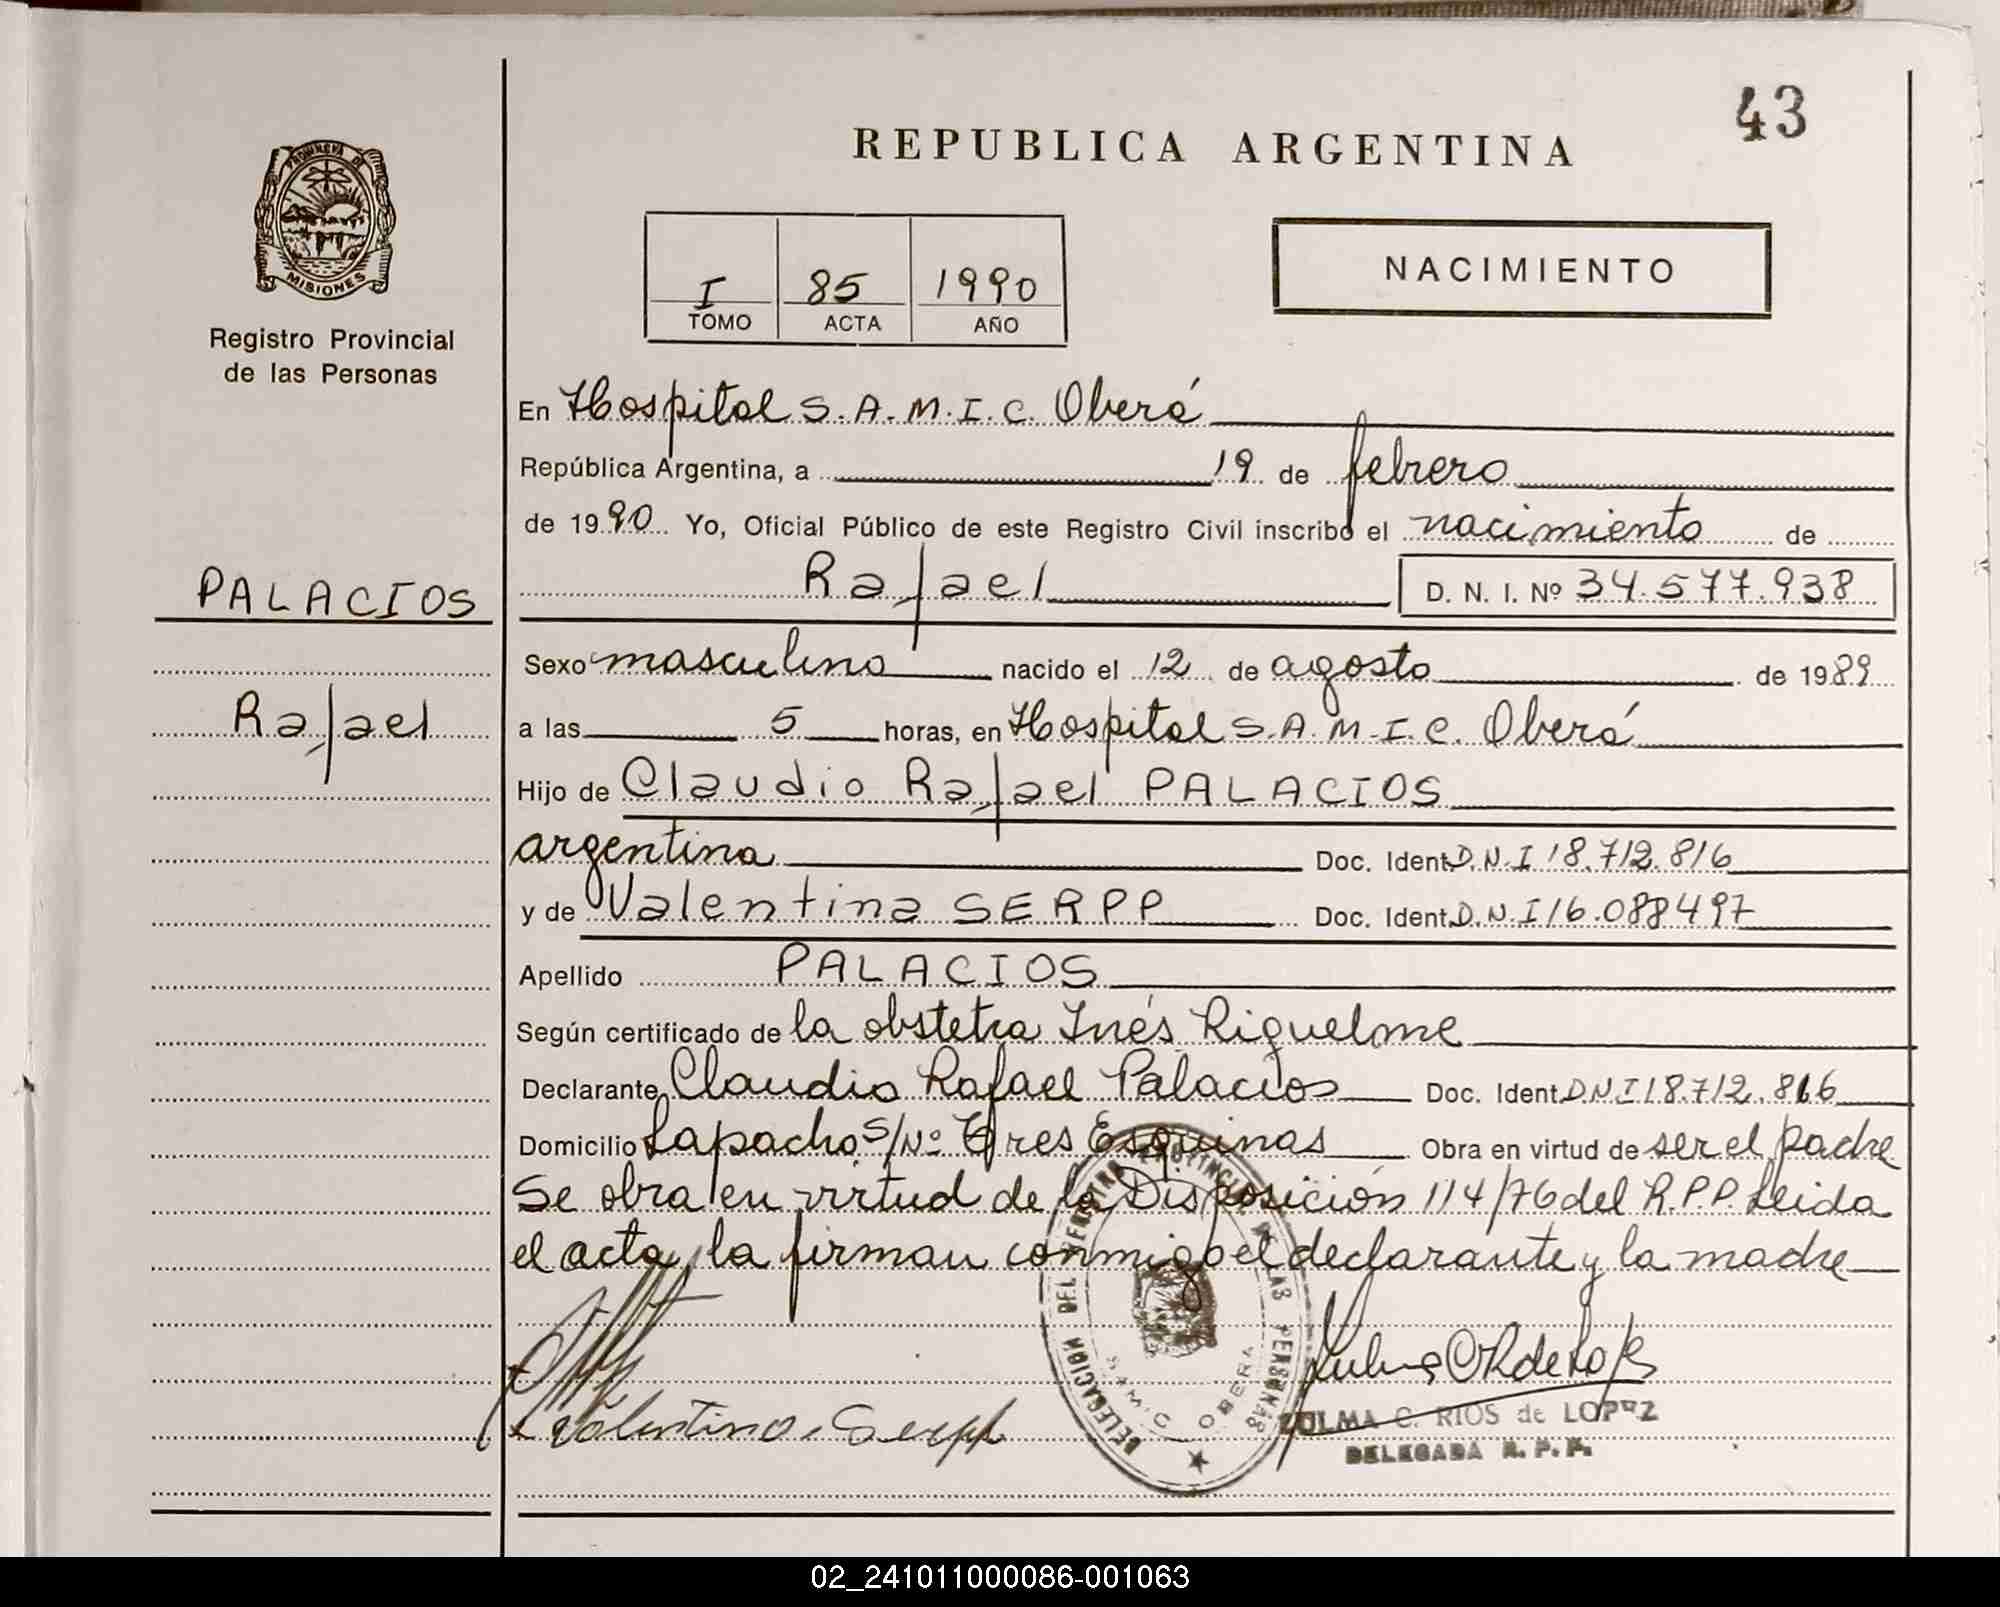 43
REPUBLICA ARGENTINA
PROVINCIA DE
MISIONES
Registro Provincial
de las Personas
I 85 1990
TOMO ACTA AÑO
NACIMIENTO
En Hospital S.A.M.I.C. Oberá
República Argentina, a 19 de febrero
de 1990 Yo, Oficial Público de este Registro Civil inscribo el nacimiento de
Rafael D. N. I. Nº 34.577.938
PALACIOS
Sexo masculino nacido el 12 de agosto de 1989
Rafael
a las 5 horas, en Hospital S.A.M.I.C. Oberá
Hijo de Claudio Rafael PALACIOS
argentina Doc. Ident. D.N.I 18.712.816
y de Valentina SERPP Doc. Ident. D.N.I 16.088497
Apellido PALACIOS
Según certificado de la obstetra Inés Riquelme
Declarante Claudio Rafael Palacios Doc. Ident. DNI 18.712.816
Domicilio Lapacho S/Nº Tres Esquinas Obra en virtud de ser el padre
Se obra en virtud de la Disposición 114/76 del R.P.P. Leida
el acta, la firman conmigo el declarante y la madre
DELEGACION DEL REGISTRO PROVINCIAL DE LAS PERSONAS
SAMIC OBERA
Valentina Serpp
ZULMA C. RIOS de LOPEZ
DELEGADA R. P. P.
02_241011000086-001063